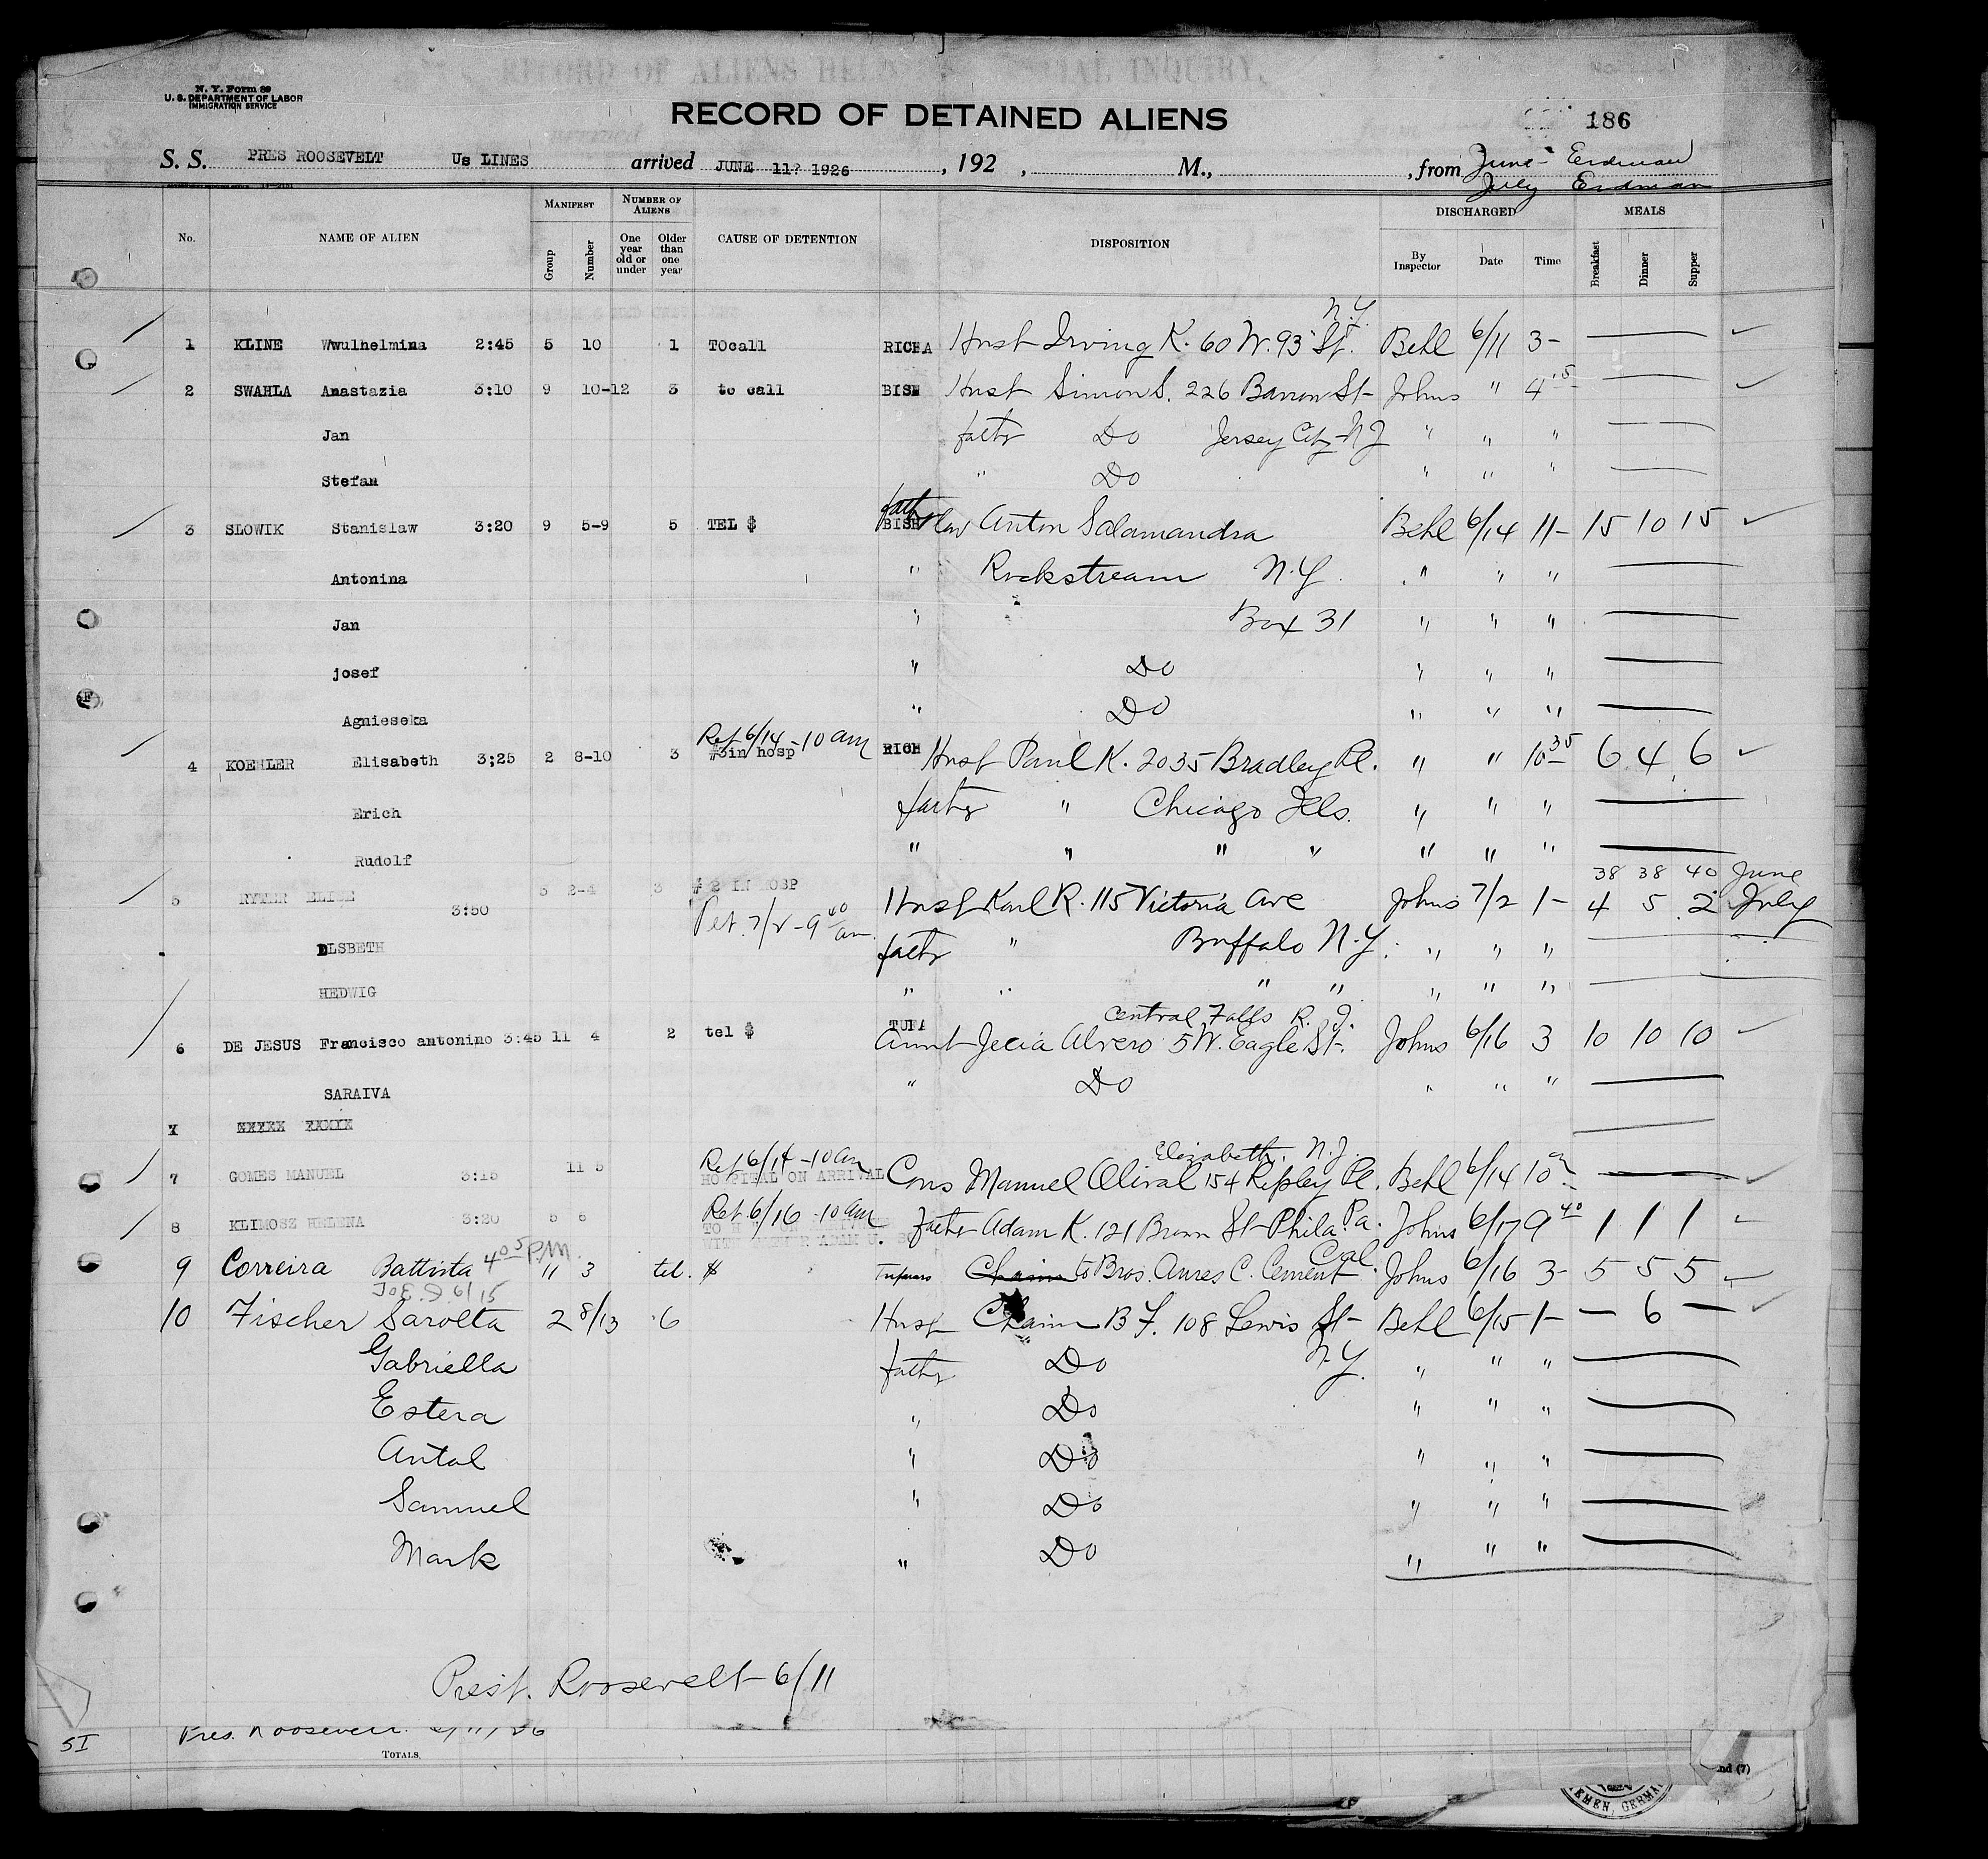 N. Y. Form 89
U. S. DEPARTMENT OF LABOR
IMMIGRATION SERVICE
RECORD OF DETAINED ALIENS
186
S. S. PRES ROOSEVELT Us LINES arrived JUNE 11? 1926, 192 , M., , from June - Erdman
July Erdman
No. NAME OF ALIEN MANIFEST Group Number NUMBER OF ALIENS One year old or under Older than one year CAUSE OF DETENTION DISPOSITION DISCHARGED By Inspector Date Time MEALS Breakfast Dinner Supper
N.Y.
1 KLINE Wwulhelmina 2:45 5 10 1 TOcall RICHA Husb Irving K. 60 W. 93 St. Behl 6/11 3-
2 SWAHLA Anastazia 3:10 9 10-12 3 to call BISH Husb Simon S. 226 Barron St- Johns " 4 15
Jan fathr Do Jersey City NJ " " "
Stefan " Do " " "
3 SLOWIK Stanislaw 3:20 9 5-9 5 TEL $ BISH fathr law Anton Salamandra Behl 6/14 11- 15 10 15
Antonina " Rockstream N.Y. " " "
Jan " Box 31 " " "
josef " Do " " "
Agnieseka " Do " " "
Ret 6/14 - 10 am
4 KOEHLER Elisabeth 3;25 2 8-10 3 #3in hosp RICH Husb Paul K. 2035 Bradley Pl. " " 10 35 6 4 6
Erich fathr " Chicago Ills. " " "
Rudolf " " " " " " "
38 38 40 June
5 RYTER ELISE 3:50 3 2-4 3 # 2 IN HOSP Husb Karl R. 115 Victoria Ave Johns 7/2 1- 4 5 2 July
Ret. 7/2 - 9 40 am
ELSBETH fathr " Buffalo N.Y. " " "
HEDWIG " " " " " " "
Central Falls R. I.
6 DE JESUS Francisco antonino 3:45 11 4 2 tel $ TUFA Aunt Jecia Alvero 5 W. Eagle St. Johns 6/16 3 10 10 10
SARAIVA " Do " " "
Elizabeth, N.J.
Ret 6/14 - 10 am
7 GOMES MANUEL 3:15 11 5 HOSPITAL ON ARRIVAL Cons Manuel Olival 154 Ripley Pl. Behl 6/14 10
Ret 6/16 - 10 am
8 KLIMOSZ HELENA 3:20 5 6 Fathr Adam K. 121 Brown St Phila. Pa. Johns 6/17 9 40 1 1 1
9 Correira Battista 4 05 P.M. 11 3 tel. $ to Bros. Cement Cal. Johns 6/16 3- 5 5 5
6/15
10 Fischer Sarolta 2 8/13 6 Husb Chaim B F. 108 Lewis St- Behl 6/15 1- — 6 —
Gabriella fathr Do N.Y. " " "
Estera " Do " " "
Antal " Do " " "
Samuel " Do " " "
Mark " Do " " "
Prest. Roosevelt - 6/11
SI Pres. Roosevelt 6/11/26
TOTALS,
nd (7)
EMEN, GERMA